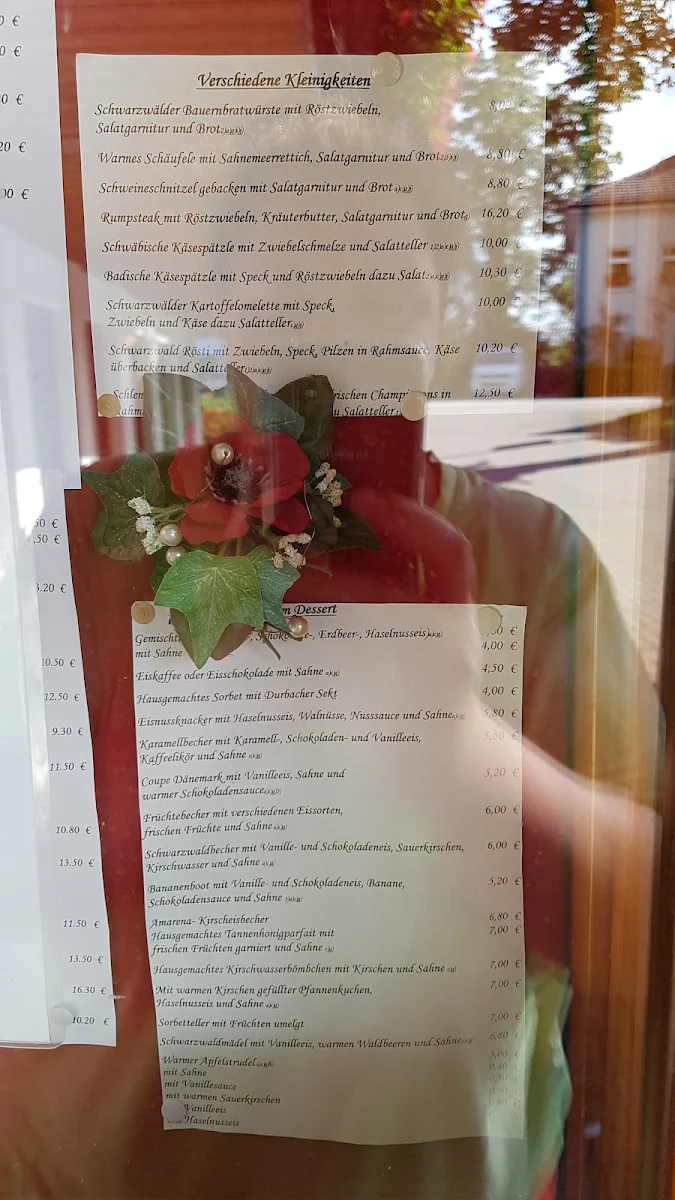 0 €
0 €
20 €
00 €
Verschiedene Kleinigkeiten
Schwarzwälder Bauernbratwürste mit Röstzwiebeln,
Salatgarnitur und Brot
Warmes Schäufele mit Sahnemeerrettich, Salatgarnitur und Brot 8,80 €
Schweineschnitzel gebacken mit Salatgarnitur und Brot 8,80 €
Rumpsteak mit Röstzwiebeln, Kräuterbutter, Salatgarnitur und Brot 16,20 €
Schwäbische Käsespätzle mit Zwiebelschmelze und Salatteller 10,00 €
Badische Käsespätzle mit Speck und Röstzwiebeln dazu Salat 10,30 €
Schwarzwälder Kartoffelomelette mit Speck, 10,00 €
Zwiebeln und Käse dazu Salatteller
Schwarzwald Rösti mit Zwiebeln, Speck, Pilzen in Rahmsauce, Käse 10,20 €
überbacken und Salatteller
12,50 €
50 €
,50 €
3.20 €
10.50 €
12.50 €
9.30 €
11.50 €
10.80 €
13.50 €
11.50 €
13.50 €
16.30 €
10.20 €
m Dessert
-, Erdbeer-, Haselnusseis)
mit Sahne 4,00 €
Eiskaffee oder Eisschokolade mit Sahne 4,50 €
Hausgemachtes Sorbet mit Durbacher Sekt 4,00 €
Eisnussknacker mit Haselnusseis, Walnüsse, Nusssauce und Sahne 5,80 €
Karamellbecher mit Karamell-, Schokoladen- und Vanilleeis, 5,50 €
Kaffeelikör und Sahne
Coupe Dänemark mit Vanilleeis, Sahne und 5,20 €
warmer Schokoladensauce
Früchtebecher mit verschiedenen Eissorten, 6,00 €
frischen Früchte und Sahne
Schwarzwaldbecher mit Vanille- und Schokoladeneis, Sauerkirschen, 6,00 €
Kirschwasser und Sahne
Bananenboot mit Vanille- und Schokoladeneis, Banane, 5,20 €
Schokoladensauce und Sahne
Amarena- Kirscheisbecher 6,80 €
Hausgemachtes Tannenhonigparfait mit 7,00 €
frischen Früchten garniert und Sahne
Hausgemachtes Kirschwasserbömbchen mit Kirschen und Sahne 7,00 €
Mit warmen Kirschen gefüllter Pfannenkuchen, 7,00 €
Haselnusseis und Sahne
Sorbetteller mit Früchten umelgt 7,00 €
Schwarzwaldmädel mit Vanilleeis, warmen Waldbeeren und Sahne 6,80 €
Warmer Apfelstrudel 3,00 €
mit Sahne
mit Vanillesauce
mit warmen Sauerkirschen
Vanilleeis
Haselnusseis